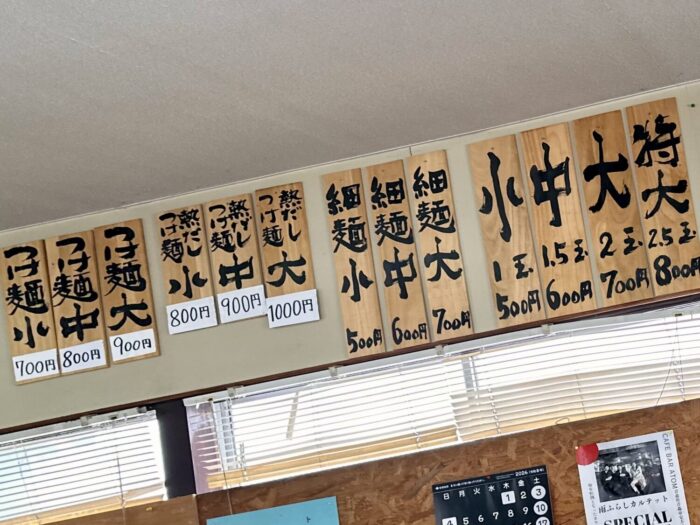 つけ麺 小
700円
つけ麺 中
800円
つけ麺 大
900円
熱だし
つけ麺 小
800円
熱だし
つけ麺 中
900円
熱だし
つけ麺 大
1000円
細麺 小
500円
細麺 中
600円
細麺 大
700円
小
1玉
500円
中
1.5玉
600円
大
2玉
700円
特大
2.5玉
800円
2026
日 月 火 水 木 金 土
1 2 3
4 5 6 7 8 9 10
CAFE BAR ATOM
雨ふらしカルテット
SPECIAL